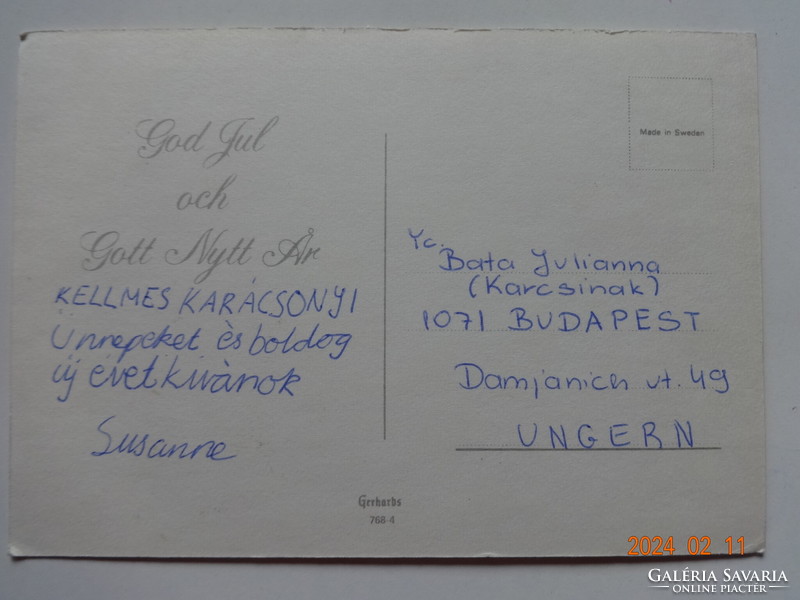 God Jul
och
Gott Nytt År
KELLMES KARÁCSONYI
Ünnepeket ès boldog
új évet kívànok
Susanne
Made in Sweden
Yc.
Bata Julianna
(Karcsinak)
1071 BUDAPEST
Damjanich ut. 49
UNGERN
Gerhards
768-4
2024 02 11
GALÉRIA SAVARIA
ONLINE PIACTÉR